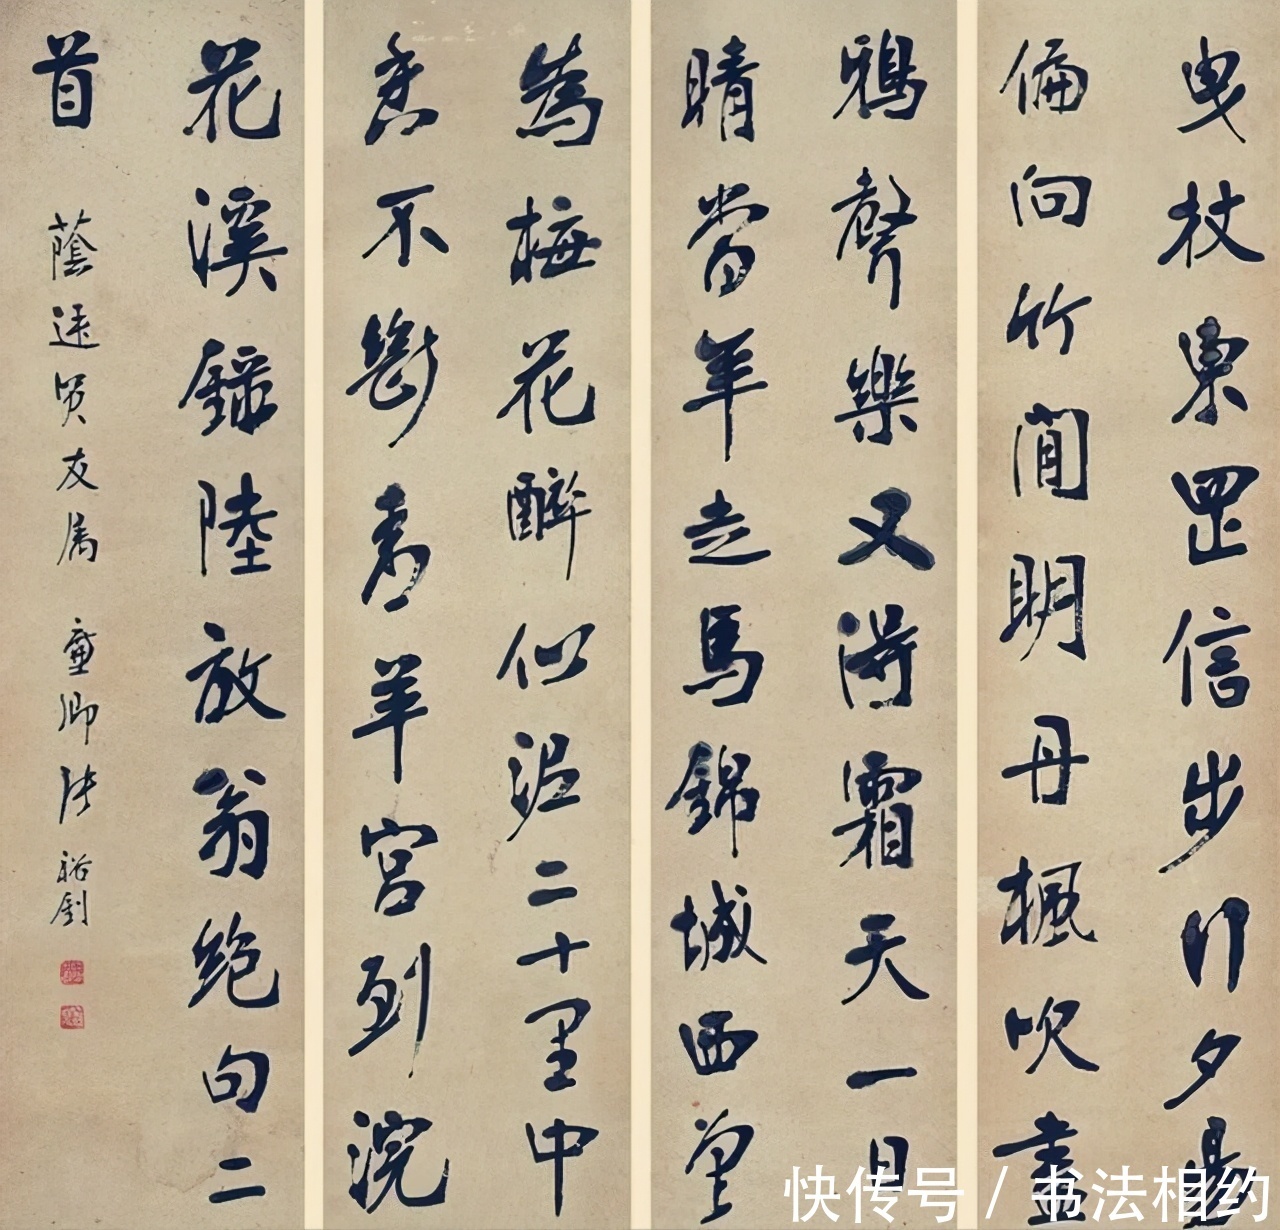 曳杖東罡信步行夕昜
偏向竹間明丹楓吹盡
鴉聲樂又得霜天一日
晴當年走馬錦城西曾
為梅花醉似泥二十里中
香不斷青羊宮到浣
花溪錄陸放翁絕句二
首 蔭賢友属 廉卿張裕釗
快传号/书法相约